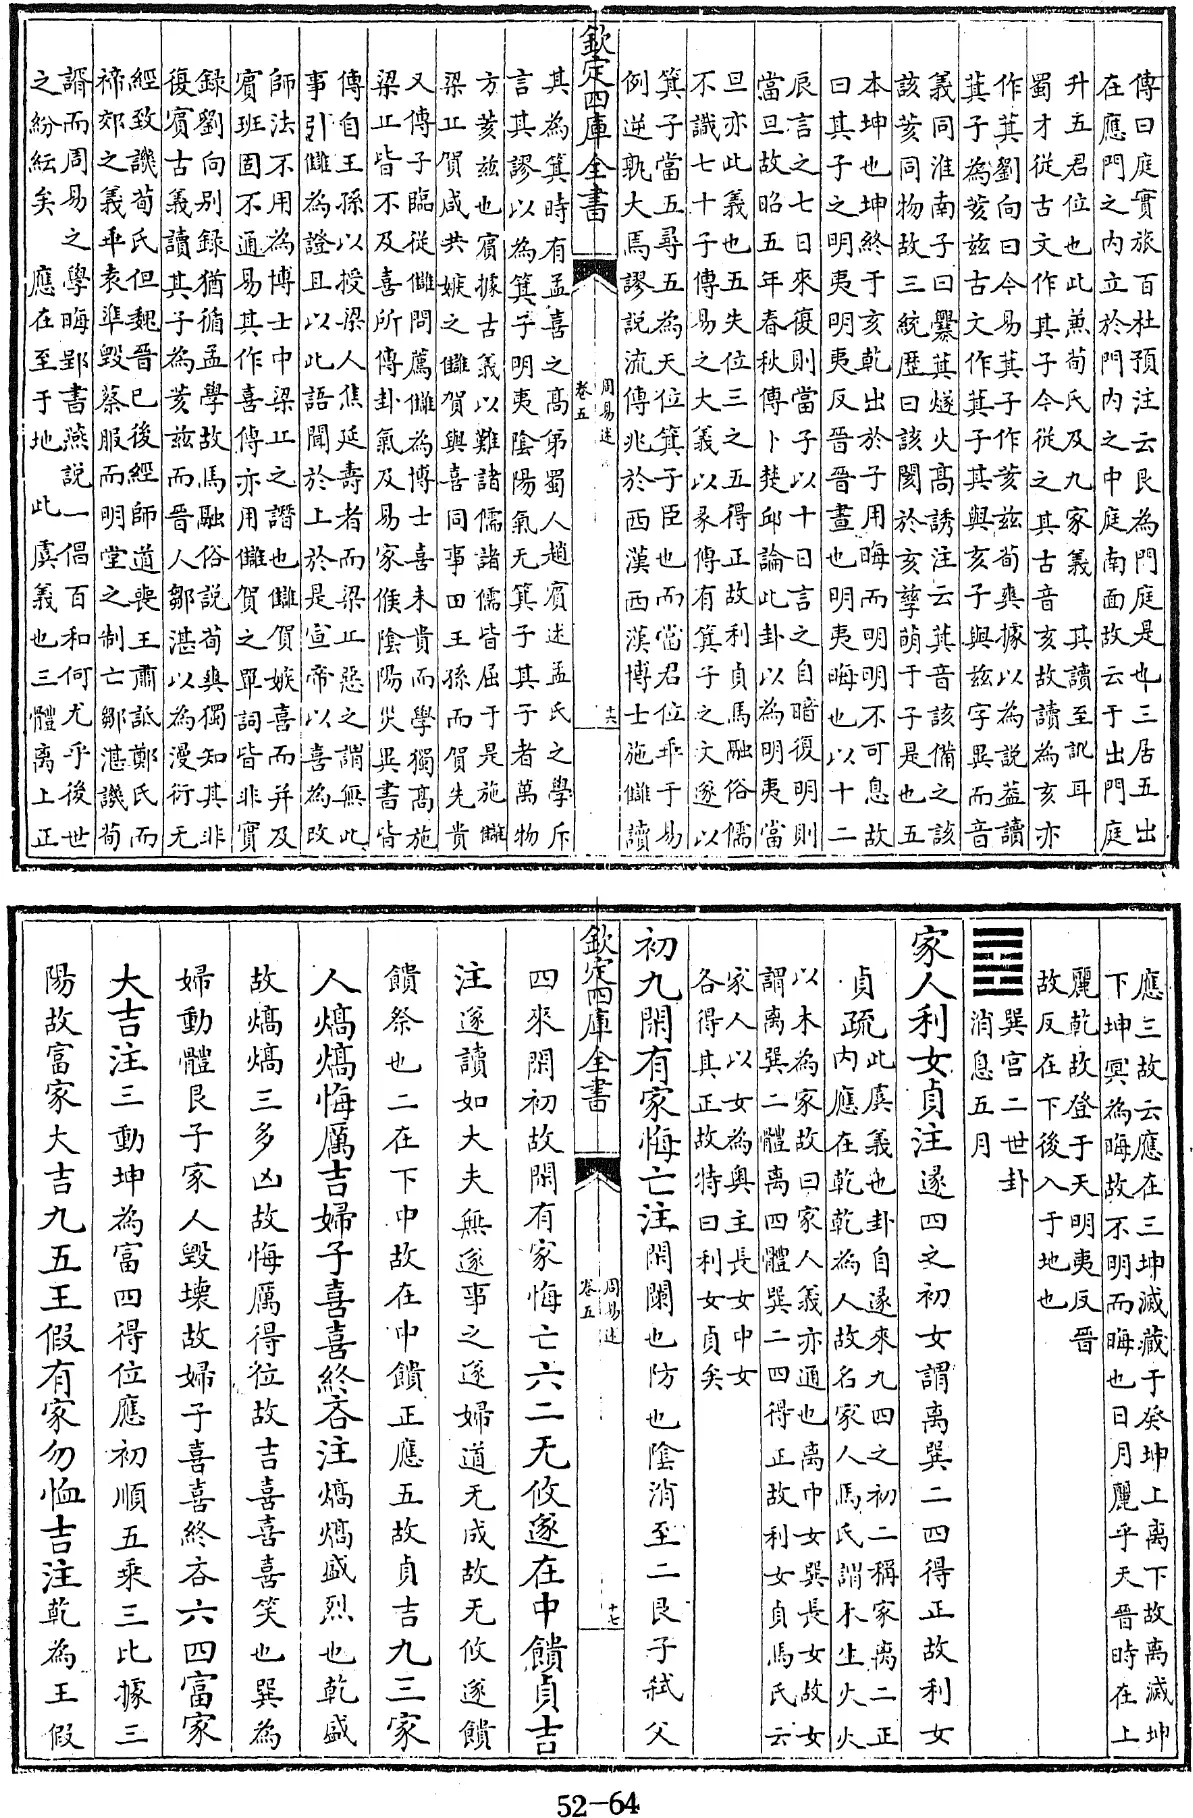 傳曰庭實旅百杜預注云艮為門庭是也三居五出
在應門之内立於門内之中庭南面故云于出門庭
升五君位也此兼荀氏及九家義　其讀至訖耳
蜀才從古文作其子今從之其古音亥故讀為亥亦
作萁劉向曰今易萁子作荄兹荀爽據以為説葢讀
萁子為荄兹古文作萁子其與亥子與兹字異而音
義同淮南子曰爨萁燧火高誘注云萁音該備之該
該荄同物故三統歴曰該閡於亥孳萌于子是也五
本坤也坤終于亥乾出於子用晦而明明不可息故
曰其子之明夷明夷反晉晉晝也明夷晦也以十二
辰言之七日來復則當子以十日言之自暗復明則
當旦故昭五年春秋傳卜楚邱論此卦以為明夷當
旦亦此義也五失位三之五得正故利貞馬融俗儒
不識七十子傳易之大義以彖傳有箕子之文遂以
箕子當五尋五為天位箕子臣也而當君位乖于易
例逆孰大焉謬説流傳兆於西漢西漢博士施讎讀
欽定四庫全書
周易述
卷五
十六
其為箕時有孟喜之高弟蜀人趙賓述孟氏之學斥
言其謬以為箕子明夷陰陽氣无箕子其子者萬物
方荄兹也賓據古義以難諸儒諸儒皆屈于是施讎
梁丘賀咸共嫉之讎賀與喜同事田王孫而賀先貴
又傳子臨從讎問薦讎為博士喜未貴而學獨高施
梁丘皆不及喜所傳卦氣及易家候陰陽災異書皆
傳自王孫以授梁人焦延壽者而梁丘惡之謂無此
事引讎為證且以此語聞於上於是宣帝以喜為改
師法不用為博士中梁丘之譖也讎賀嫉喜而并及
賓班固不通易其作喜傳亦用讎賀之單詞皆非實
録劉向别録猶循孟學故馬融俗説荀爽獨知其非
復賓古義讀其子為荄兹而晉人鄒湛以為漫衍无
經致譏荀氏但魏晉已後經師道喪王肅詆鄭氏而
禘郊之義乖袁準毁蔡服而明堂之制亡鄒湛譏荀
諝而周易之學晦郢書燕説一倡百和何尤乎後世
之紛紜矣　應在至于地　此虞義也三體離上正
應三故云應在三坤滅藏于癸坤上離下故離滅坤
下坤冥為晦故不明而晦也日月麗乎天晉時在上
麗乾故登于天明夷反晉
故反在下後入于地也
䷤
巽宫二世卦
消息五月
家人利女貞注遂四之初女謂离巽二四得正故利女
貞疏
此虞義也卦自遂來九四之初二稱家离二正
内應在乾乾為人故名家人馬氏謂木生火火
以木為家故曰家人義亦通也离中女巽長女故女
謂离巽二體离四體巽二四得正故利女貞馬氏云
家人以女為奥主長女中女
各得其正故特曰利女貞矣
初九閑有家悔亡注閑闌也防也陰消至二艮子弑父
欽定四庫全書
周易述
卷五
十七
四來閑初故閑有家悔亡六二无攸遂在中饋貞吉
注遂讀如大夫無遂事之遂婦道无成故无攸遂饋
饋祭也二在下中故在中饋正應五故貞吉九三家
人熇熇悔厲吉婦子喜喜終吝注熇熇盛烈也乾盛
故熇熇三多凶故悔厲得位故吉喜喜喜笑也巽為
婦動體艮子家人毁壞故婦子喜喜終吝六四富家
大吉注三動坤為富四得位應初順五乘三比據三
陽故富家大吉九五王假有家勿恤吉注乾為王假
52-64